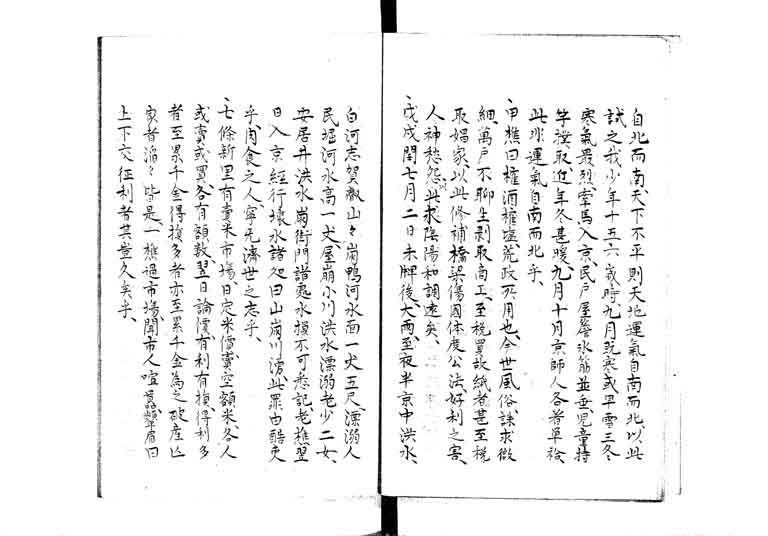 自北而南、天下不平則天地運氣自南而北、以此
試之我少年十五六歲時、九月既寒或早雪三冬
寒氣最烈牽馬入京、民戶屋簷氷筋並垂、児童持
竿撲取近年冬甚暖、九月十月京師人各着單袷、
此非運氣自南而北乎、
一申樵曰榷酒榷塩、荒政所用也、今世風俗、誅求微
細、萬戶不聊生剥取商工、至税買故紙者甚至税
取娼家以此修補橋梁傷國体度公法好利之害、
人神愁怨、以此求陰陽和調遠矣、
一戊戌閏七月二日未牌後、大雨、至夜半京中洪水、
白河志賀叡山々崩鴨河水面一丈五尺、漂溺人
民堀河水高一丈、屋崩小川洪水漂溺老少二女、
安居井洪水崩衙門諸處水損不可悉記、老樵翌
日入京經行壊水諸処曰山崩川涝此罪由酷吏
乎、肉食之人寧无濟世之志乎、
一七條新里有賣米市場日定米價賣空額米各人
或賣或買、各有額數、翌日論價有利有損、得利多
者至累千金得損多者亦至累千金為之破産亡
家者滔々皆是、一樵過市場、聞市人喧囂顰眉曰
上下交征利者其豈久矣乎、